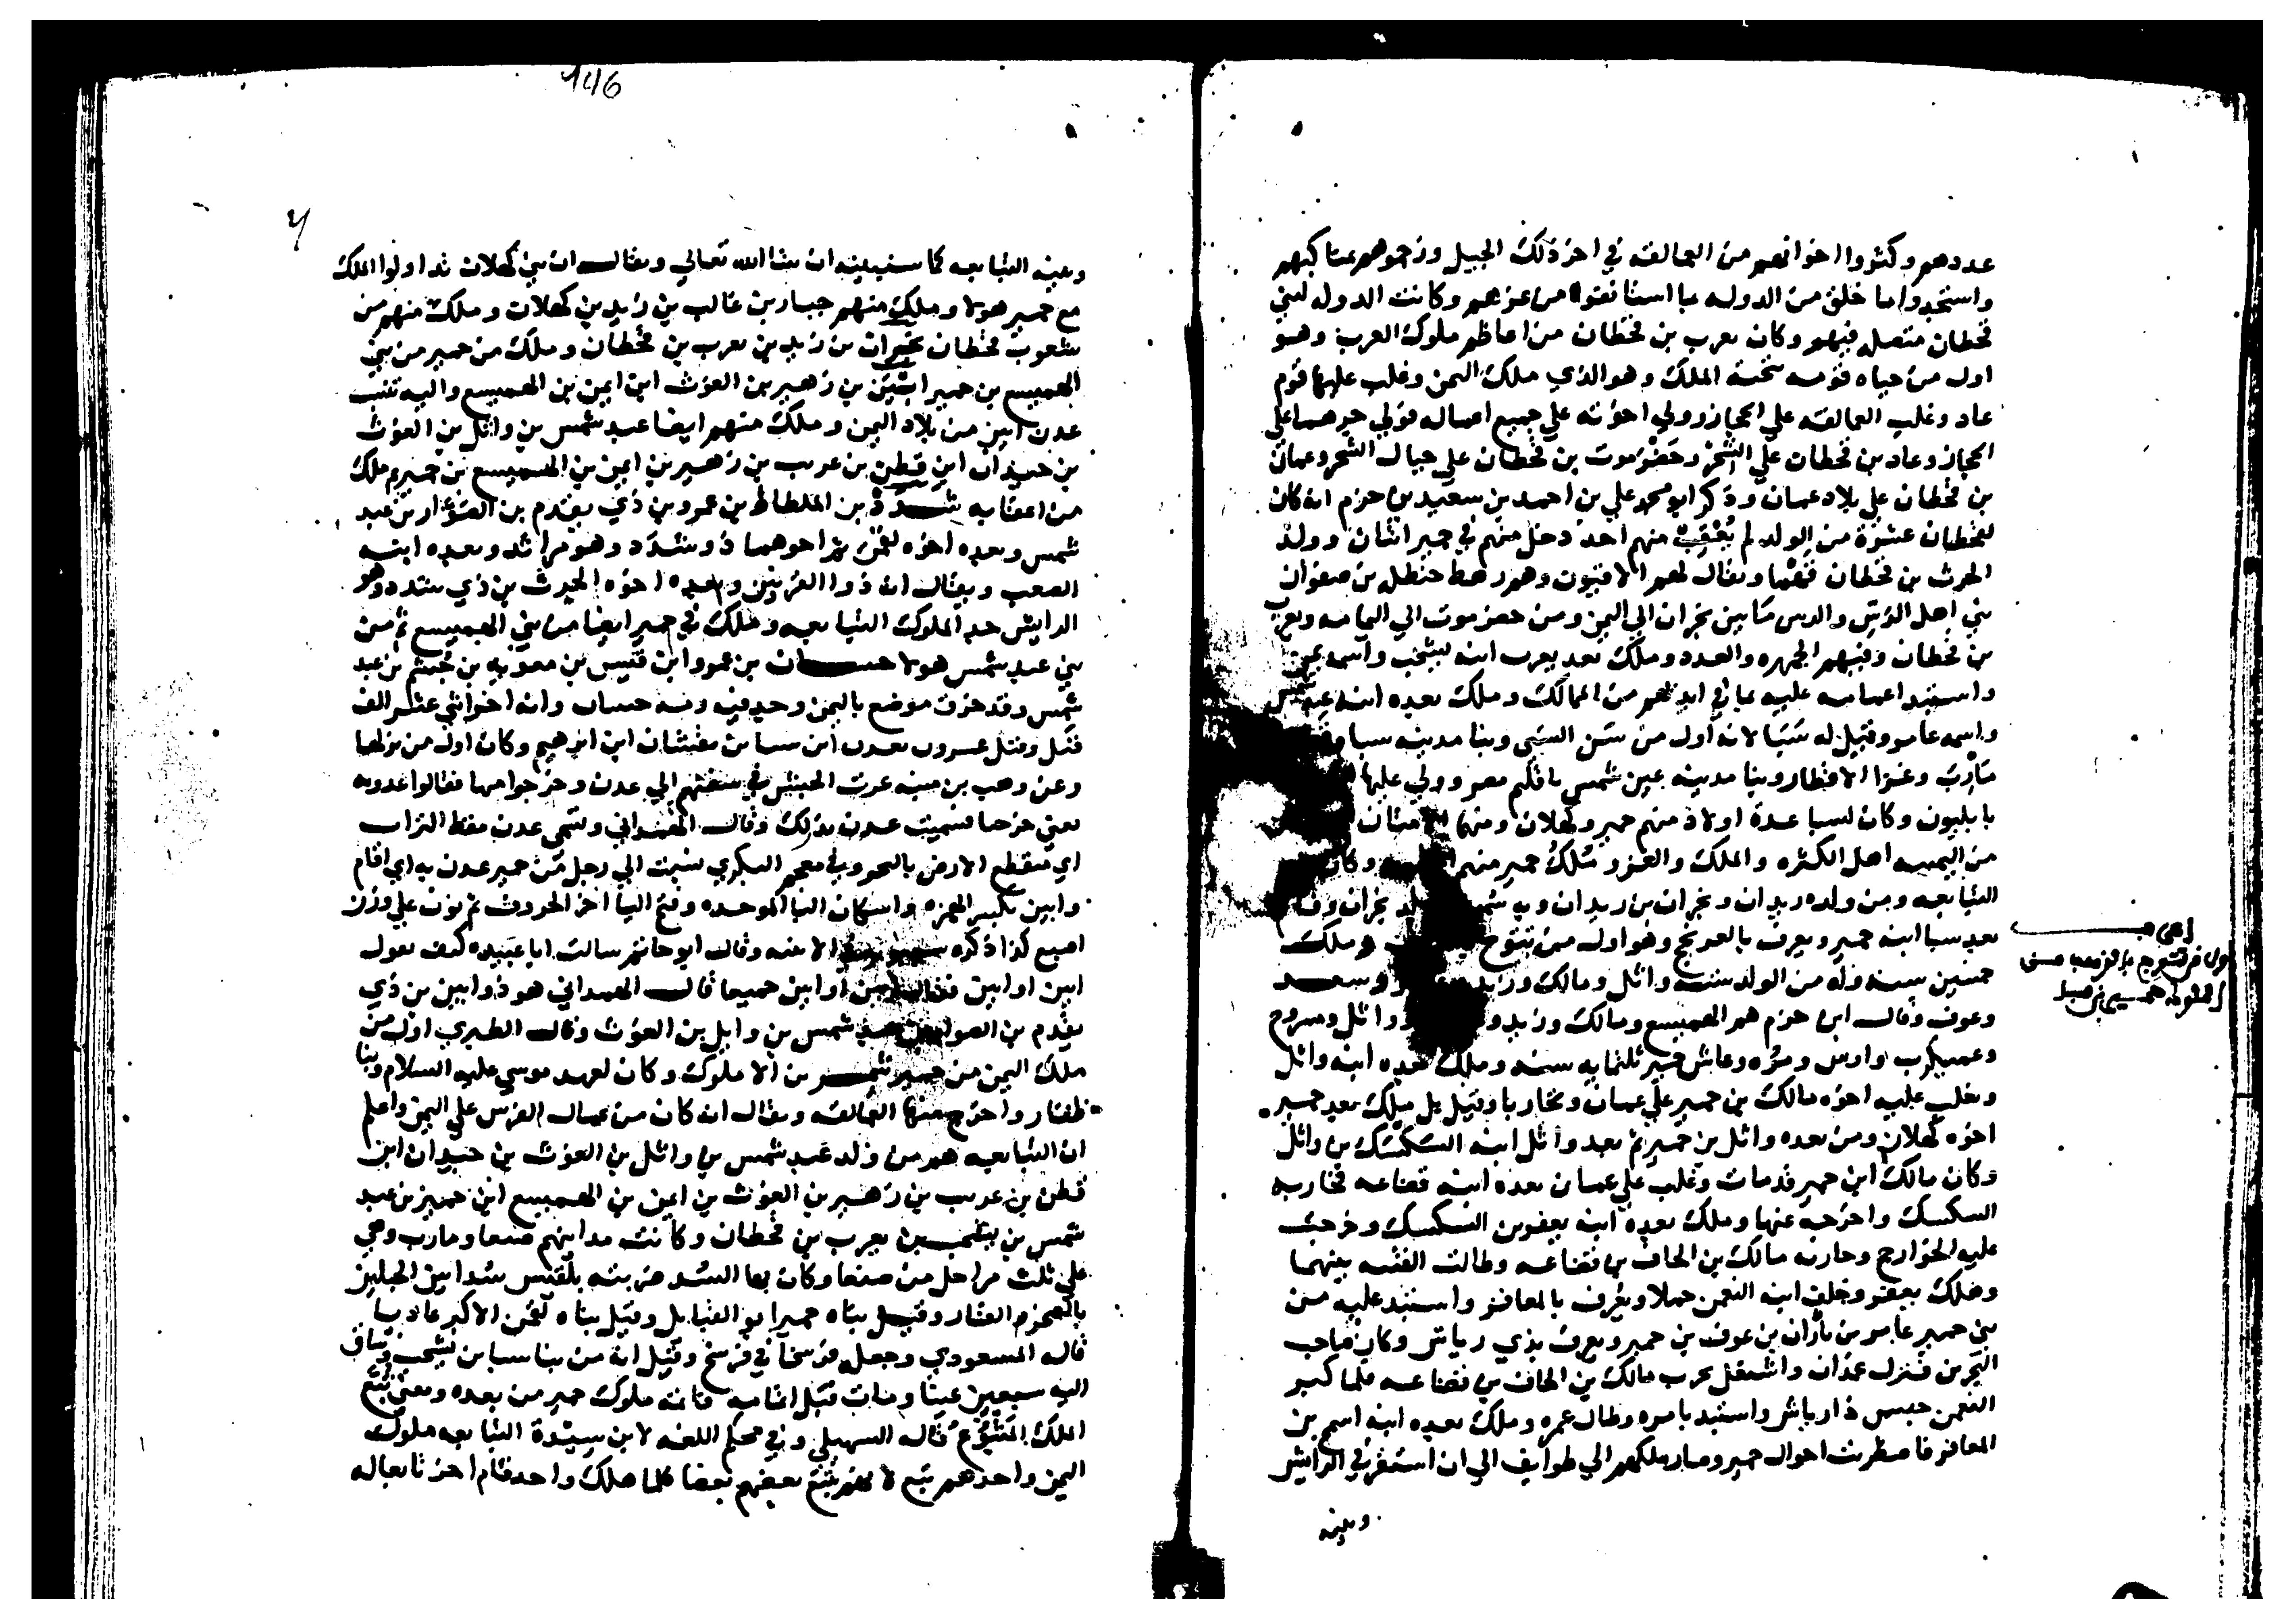 عددهم وكثروا اخوانهم من العمالقه في اخر ذلك الجيل وزحموهم بمناكبهم
واستجدوا ما خلق من الدوله بما استانفوا من عزهم وكانت الدوله لبني
قحطان متصله فيهم وكان يعرب بن قحطان من اعاظم ملوك العرب وهو
اول من حياه قومه بتحية الملك وهو الذي ملك اليمن وغلب عليها قوم
عاد وغلب العمالقه علي الحجاز وولي اخوته علي جميع اعماله فولي جرهما علي
الحجاز وعاد بن قحطان علي الشحر وحضرموت بن قحطان علي جبال الشحر وعمان
بن قحطان علي بلاد عمان وذكر ابو محمد علي بن احمد بن سعيد بن حزم انه كان
لقحطان عشرة من الولد لم يعقب منهم احد دخل منهم في حمير اثنان وولد
الحرث بن قحطان يقال لهم الاقيون وهم رهط حنظله بن صفوان
نبي اهل الرس والرس ما بين نجران الي اليمن ومن حضرموت الي اليمامه ويعرب
بن قحطان وفيهم الجمهره والعدد وملك بعد يعرب ابنه يشجب واسمه يمن
واستبد اعمامه عليه بما في ايديهم من الممالك وملك بعده ابنه عبد شمس
واسمه عامر وقيل له سبا لانه اول من سن السبي وبنا مدينه سبا
مأرب وغزا الاقطار وبنا مدينه عين شمس باقليم مصر وولي عليها
بابليون وكان لسبا عدة اولاد منهم حمير وكهلان ومنهما
من اليمنيه اهل الكثره والملك والعز وملك حمير منهم وكان
التبابعه ومن ولده زيدان ونجران بن زيدان وبه بلد نجران
بعد سبا ابنه حمير ويعرف بالعرنجج وهو اول من تتوج وملك
خمسين سنه وله من الولد سته وائل ومالك وزيد وسعد
وعوف وقال ابن حزم هم الهميسع ومالك وزيد ووائل ومسروح
وعميكرب واوس ومره وعاش حمير ثلثمايه سنه وملك بعده ابنه وائل
وتغلب عليه اخوه مالك بن حمير علي عمان وتحاربا وقيل بل ملك بعد حمير
اخوه كهلان ومن بعده وائل بن حمير ثم بعد وائل ابنه السكسك بن وائل
وكان مالك ابن حمير قد مات وغلب علي عمان بعده ابنه قضاعه فحاربه
السكسك واخرجه عنها وملك بعده ابنه يعفر بن السكسك وخرجت
عليه الخوارج وحاربه مالك بن الحاف بن قضاعه وطالت الفتنه بينهما
وهلك يعفر وخلف ابنه النعمن حملا ويعرف بالمعافر واستبد عليه من
بني حمير عامر بن باران بن عوف بن حمير ويعرف بذي رياش وكان صاحب
البحرين فنزل عمان واشتغل بحرب مالك بن الحاف بن قضاعه فلما كبر
النعمن حبس ذا رياش واستبد بامره وطال عمره وملك بعده ابنه اسمح بن
المعافر فاضطربت احوال حمير وصار ملكهم الي طوايف الي ان استقر في الرايش
وبنيه
146
وبنيه التبابعه كما سنبينه ان شا الله تعالي ويقال ان بني كهلان تداولوا الملك
مع حمير هولا وملك منهم جبار بن غالب بن زيد بن كهلان وملك منهم من
شعوب قحطان نجران بن زيد بن يعرب بن قحطان وملك من حمير من بني
الهميسع بن حمير ابين بن زهير بن الغوث ابن ايمن بن الهميسع واليه تنسب
عدن ابين من بلاد اليمن وملك منهم ايضا عبد شمس بن وائل بن الغوث
بن حيدان ابن قطن بن عريب بن زهير بن ايمن بن الهميسع بن حمير وملك
من اعقابه شدد بن الملطاط بن عمرو بن ذي يقدم بن الصوار بن عبد
شمس وبعده اخوه لقمن ثم اخوهما ذو شدد وهو مراثد وبعده ابنه
الصعب ويقال انه ذوا القرنين وبعده اخوه الحرث بن ذي شدد وهو
الرايش جد الملوك التبابعه وملك في حمير ايضا من بني الهميسع ثم من
بني عبد شمس هولا حسان بن عمرو ابن قيس بن معويه بن جشم بن عبد
شمس وقد خرف موضع باليمن وجد فيه رمه حسان وانه اخر اثني عشر الف
قيل وقيل عدن ابن سبا بن نقيشان ابن ابرهيم وكان اول من نزلها
وعن وهب بن منبه عبرت الحبش في سفنهم الي عدن وخرجوا منها فقالوا عدونه
يعني خرجنا فسميت عدن بذلك وقال الهمداني وتسمي عدن مقط التراب
اي منقطع الارض بالبحر وفي معجم البكري نسبت الي رجل من حمير عدن به اي اقام
وابين بكسر الهمزه واسكان البا الموحده وفتح اليا اخر الحروف ثم نون علي وزن
اصبع كذا ذكره الابنيه وقال ابو حاتم سالت ابا عبيده كيف يقول
ابين او ابين فقال ابين او ابين جميعا قال الهمداني هو ذو ابين بن ذي
يقدم بن الصوار بن عبد شمس بن وايل بن الغوث وقال الطبري اول من
ملك اليمن من حمير شمر بن الاملوك وكان لعهد موسي عليه السلام وبنا
ظفار واخرج منها العمالقه ويقال انه كان من عمال الفرس علي اليمن واعلم
ان التبابعه هم من ولد عبد شمس بن وائل بن الغوث بن حيدان ابن
قطن بن عريب بن زهير بن الغوث بن ايمن بن الهميسع ابن حمير بن عبد
شمس بن يشجب بن يعرب بن قحطان وكانت مداينهم صنعا ومارب وهي
علي ثلث مراحل من صنعا وكان بها السد ضربته بلقيس سدا بين الجبلين
بالصخر والقار وقيل بناه حمير ابو القبايل وقيل بناه لقمن الاكبر عاديا
قاله المسعودي وجعله فرسخا في فرسخ وقيل انه من بنا سبا بن يشجب وساق
اليه سبعين عينا ومات قبل اتمامه فاتمه ملوك حمير من بعده ومعني تبع
الملك المتبوع قاله السهيلي وفي محكم اللغه لابن سيدة التبابعه ملوك
اليمن واحدهم تبع لانهم يتبع بعضهم بعضا كلما هلك واحد قام اخر تابعا له